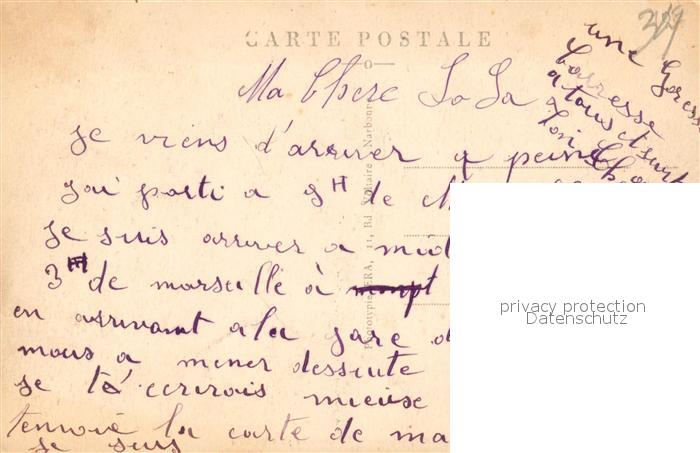 CARTE POSTALE
319
Ma Chere LoLa
une Gross
Carresse
a tous et surt
Loni
je viens d'arriver a peine
jai parti a 9H de
je suis arriver a mid
3H de marseille à
en arrivant a la gare d
nous a mener dessente
je té ecrirois mieuse
tenvoie la carte de ma
je suis
11, Bd Voltaire, Narbonne
privacy protection
Datenschutz